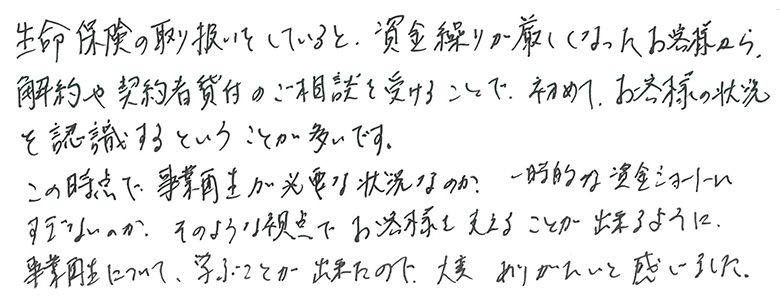 生命保険の取り扱いをしていると、資金繰りが厳しくなったお客様から、
解約や契約者貸付のご相談を受けることで、初めて、お客様の状況
を認識するということが多いです。
この時点で事業再生が必要な状況なのか、一時的な資金ショートに
すぎないのか、そのような視点でお客様を支えることが出来るように、
事業再生について、学ぶことが出来たので、大変ありがたいと感じました。